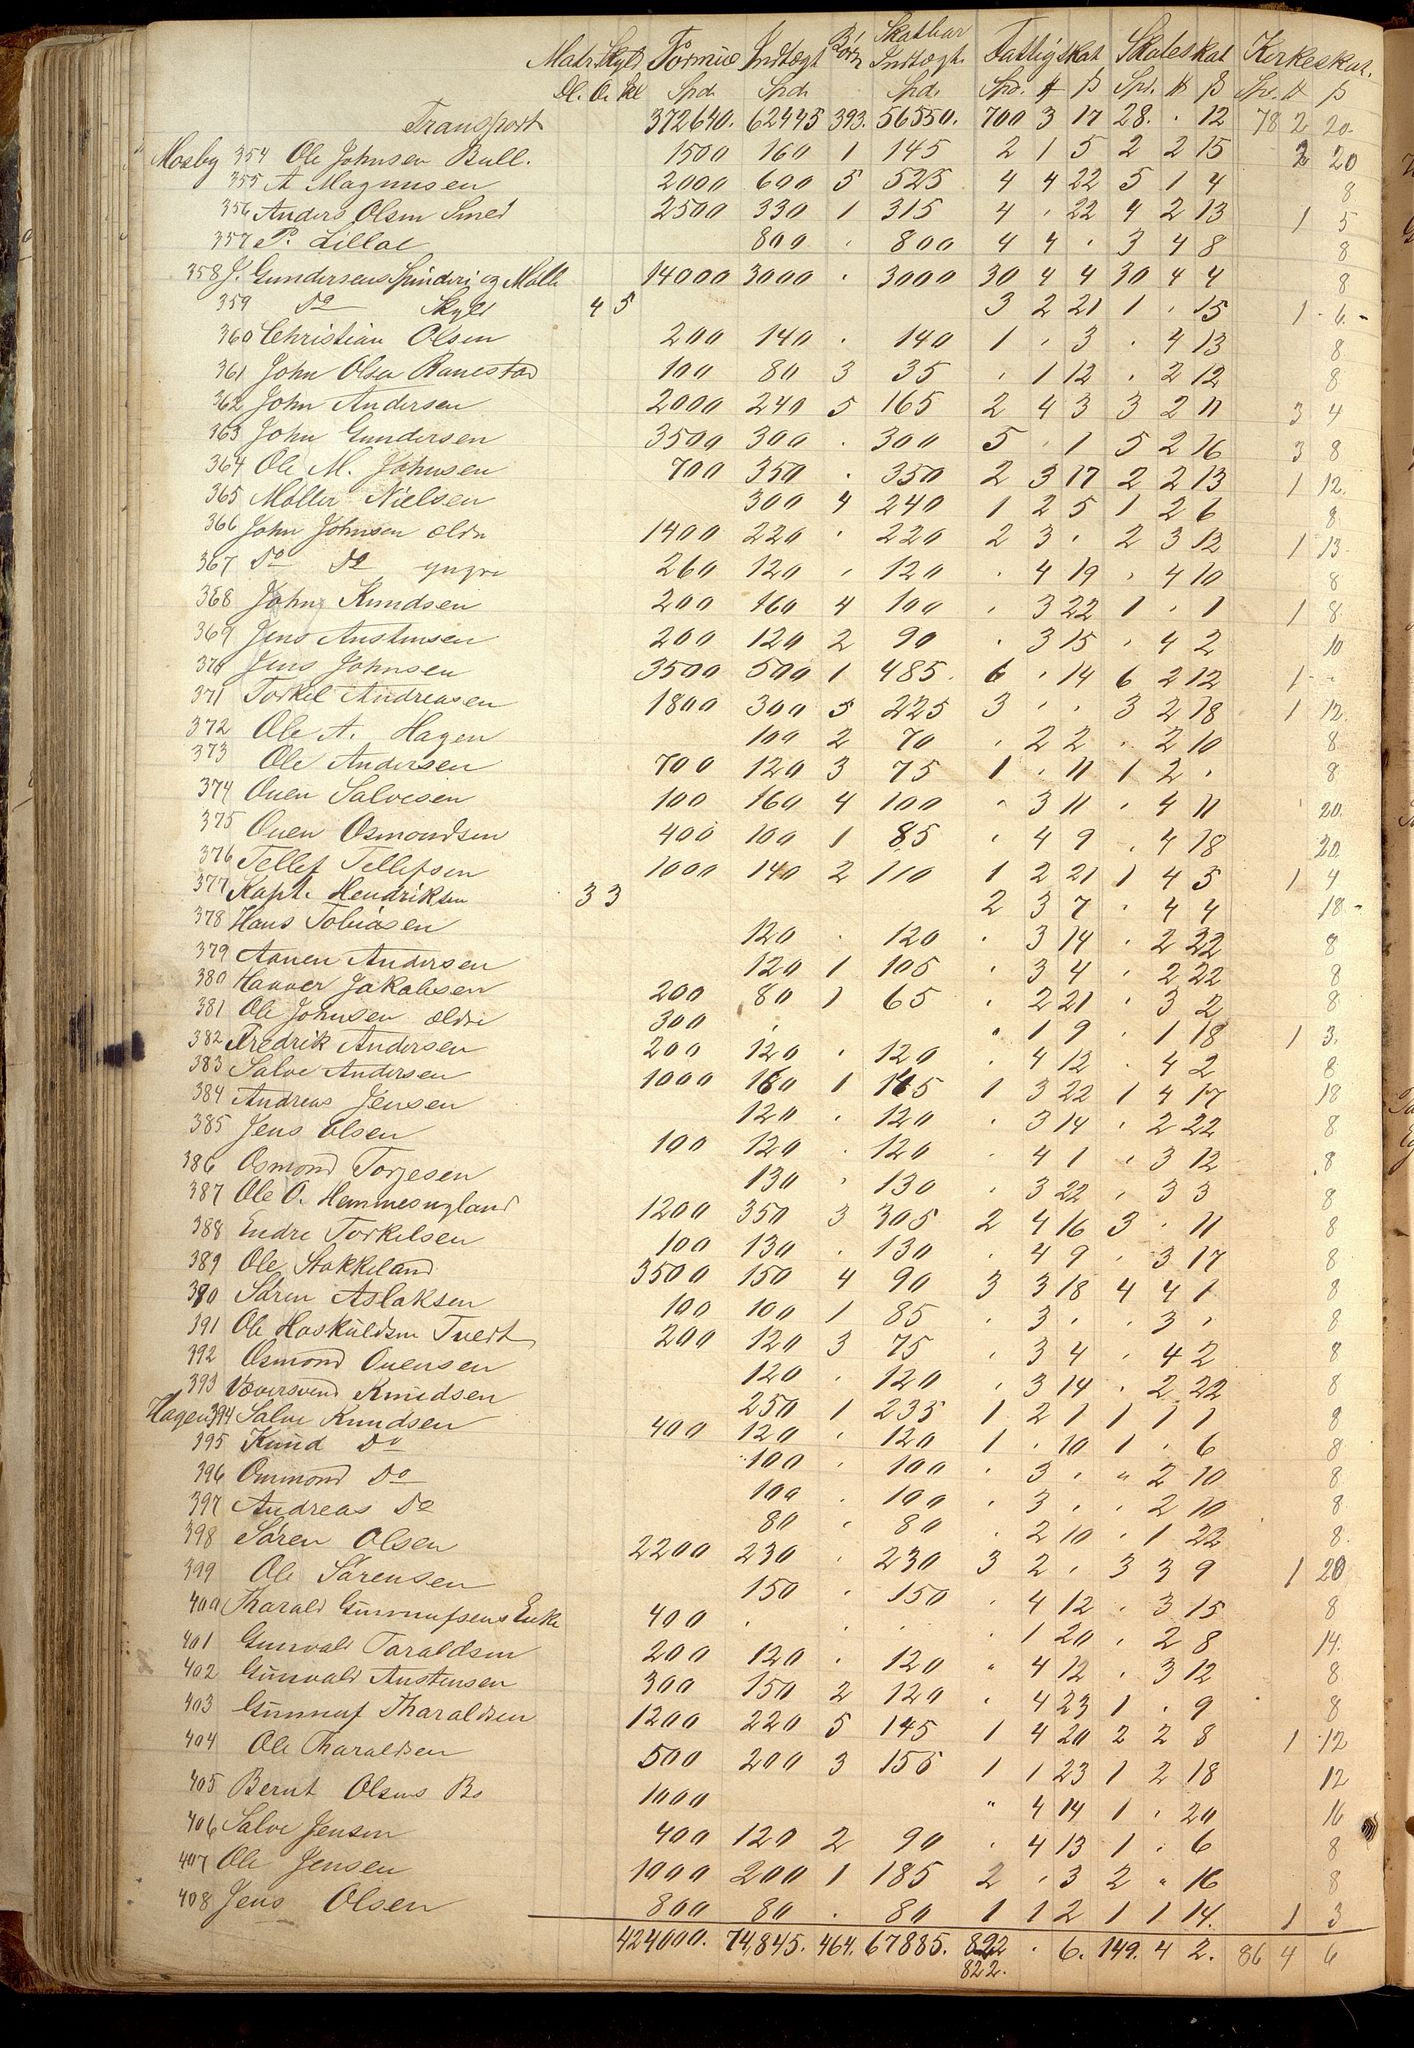 Matr. Skyld Formue Indtægt Børn Skatbar Indtægt. Fattigskat Skoleskat Kirkeskat.
Dl. O. Sk Spd. Spd. Spd. Spd. # ß Spd. # ß Spd. # ß
Transport 372640. 62445 393. 56550. 700 3 17 28. . 12 78 2 20.
Mosby 354 Ole Johnsen Bull. 1500 160 1 145 2 1 5 2 2 15 2 20
355 A Magnusen 2000 600 5 525 4 4 22 5 1 4 8
356 Anders Olsen Smed 2500 330 1 315 4 . 22 4 2 13 1 5
357 P. Lilloe 800 . 800 4 4 . 3 4 8 8
358 J. Gundersens Spinderi og Mølle 14000 3000 . 3000 30 4 4 30 4 4 8
359 Do Skyld 4 5 3 2 21 1 . 15 1 - 6 -
360 Christian Olsen 200 140 . 140 1 . 3 . 4 13 8
361 John Olsen Ranestad 100 80 3 35 . 1 12 . 2 12 8
362 John Andersen 2000 240 5 165 2 4 3 3 2 11 3 4
363 John Gundersen 3500 300 . 300 5 . 1 5 2 16 3 8
364 Ole M. Johnsen 700 350 . 350 2 3 17 2 2 13 1 12.
365 Møller Nielsen 300 4 240 1 2 5 1 2 6 8
366 John Johnsen ældre 1400 220 . 220 2 3 . 2 3 12 1 13
367 Do Do yngre 260 120 . 120 . 4 19 . 4 10 8
368 John Knudsen 200 160 4 100 . 3 22 1 . 1 1 8
369 Jens Austensen 200 120 2 90 . 3 15 . 4 2 10
370 Jens Johnsen 3500 500 1 485. 6 . 14 6 2 12 1 - -
371 Torkel Andreasen 1800 300 5 225 3 . . 3 2 18 1 12.
372 Ole A. Hagen 100 2 70 . 2 2 . 2 10 8
373 Ole Andersen 700 120 3 75 1 . 11 1 2 . 8
374 Ouen Salvesen 100 160 4 100 . 3 11 . 4 11 20.
375 Ouen Osmondsen 400 100 1 85 . 4 9 . 4 18 20
376 Tellef Tellefsen 1000 140 2 110 1 2 21 1 4 5 1 4
377 Kapt. Hendriksen 3 3 2 3 7 . 4 4 18 -
378 Hans Tobiasen 120 . 120 . 3 14 . 2 22 8
379 Aanen Andersen 120 1 105 . 3 4 . 2 22 8
380 Haaver Jakobsen 200 80 1 65 . 2 21 . 3 2 8
381 Ole Johnsen ældre 300 . . 1 9 . 1 18 1 3.
382 Fredrik Andersen 200 120 . 120 . 4 12 . 4 2 8
383 Salve Andersen 1000 160 1 145 1 3 22 1 4 17 18
384 Andreas Jensen 120 . 120 . 3 14 . 2 22 8
385 Jens Olsen 100 120 . 120 . 4 1 . 3 12 8
386 Osmond Torjesen 130 . 130 . 3 22 . 3 3 8
387 Ole O. Hemmesugland 1200 350 3 305 2 4 16 3 . 11 8
388 Endre Torkelsen 100 130 . 130 . 4 9 . 3 17 8
389 Ole Stokkeland 3500 150 4 90 3 3 18 4 4 1 8
390 Søren Aslaksen 100 100 1 85 . 3 . . 3 . 8
391 Ole Haskuldsen Tvedt 200 120 3 75 . 3 4 . 4 2 8
392 Osmond Ouensen 120 . 120 . 3 14 . 2 22 8
393 Væversvend Knudsen 250 1 235 1 2 1 1 1 1 8
Hagen 394 Salve Knudsen 400 120 . 120 1 . 10 1 . 6 8
395 Knud Do 100 . 100 . 3 . " 2 10 8
396 Ommond Do 100 . 100 . 3 . . 2 10 8
397 Andreas Do 80 . 80 . 2 10 . 1 22 8.
398 Søren Olsen 2200 230 . 230 3 2 . 3 3 9 1 20
399 Ole Sørensen 150 . 150 . 4 12 . 3 15 8
400 Tharald Gunnufsens Enke 400 . . . . 1 20 . 2 8 14.
401 Gunvald Taraldsen 200 120 . 120 " 4 12 . 3 12 8
402 Gunvald Austensen 300 150 2 120 . 4 23 1 . 9 8
403 Gunnuf Tharaldsen 1200 220 5 145 1 4 20 2 2 8 1 12
404 Ole Tharaldsen 500 200 3 155 1 1 23 1 2 18 12
405 Bernt Olsens Bo 1000 " 4 14 1 . 20 16
406 Salve Jensen 400 120 2 90 . 4 13 1 . 6 8
407 Ole Jensen 1000 200 1 185 2 . 3 2 " 16 8
408 Jens Olsen 800 80 . 80 1 1 2 1 1 14. 1 3
424000. 74,845. 464. 67885. 822 . 6. 149. 4 2. 86 4 6
822.